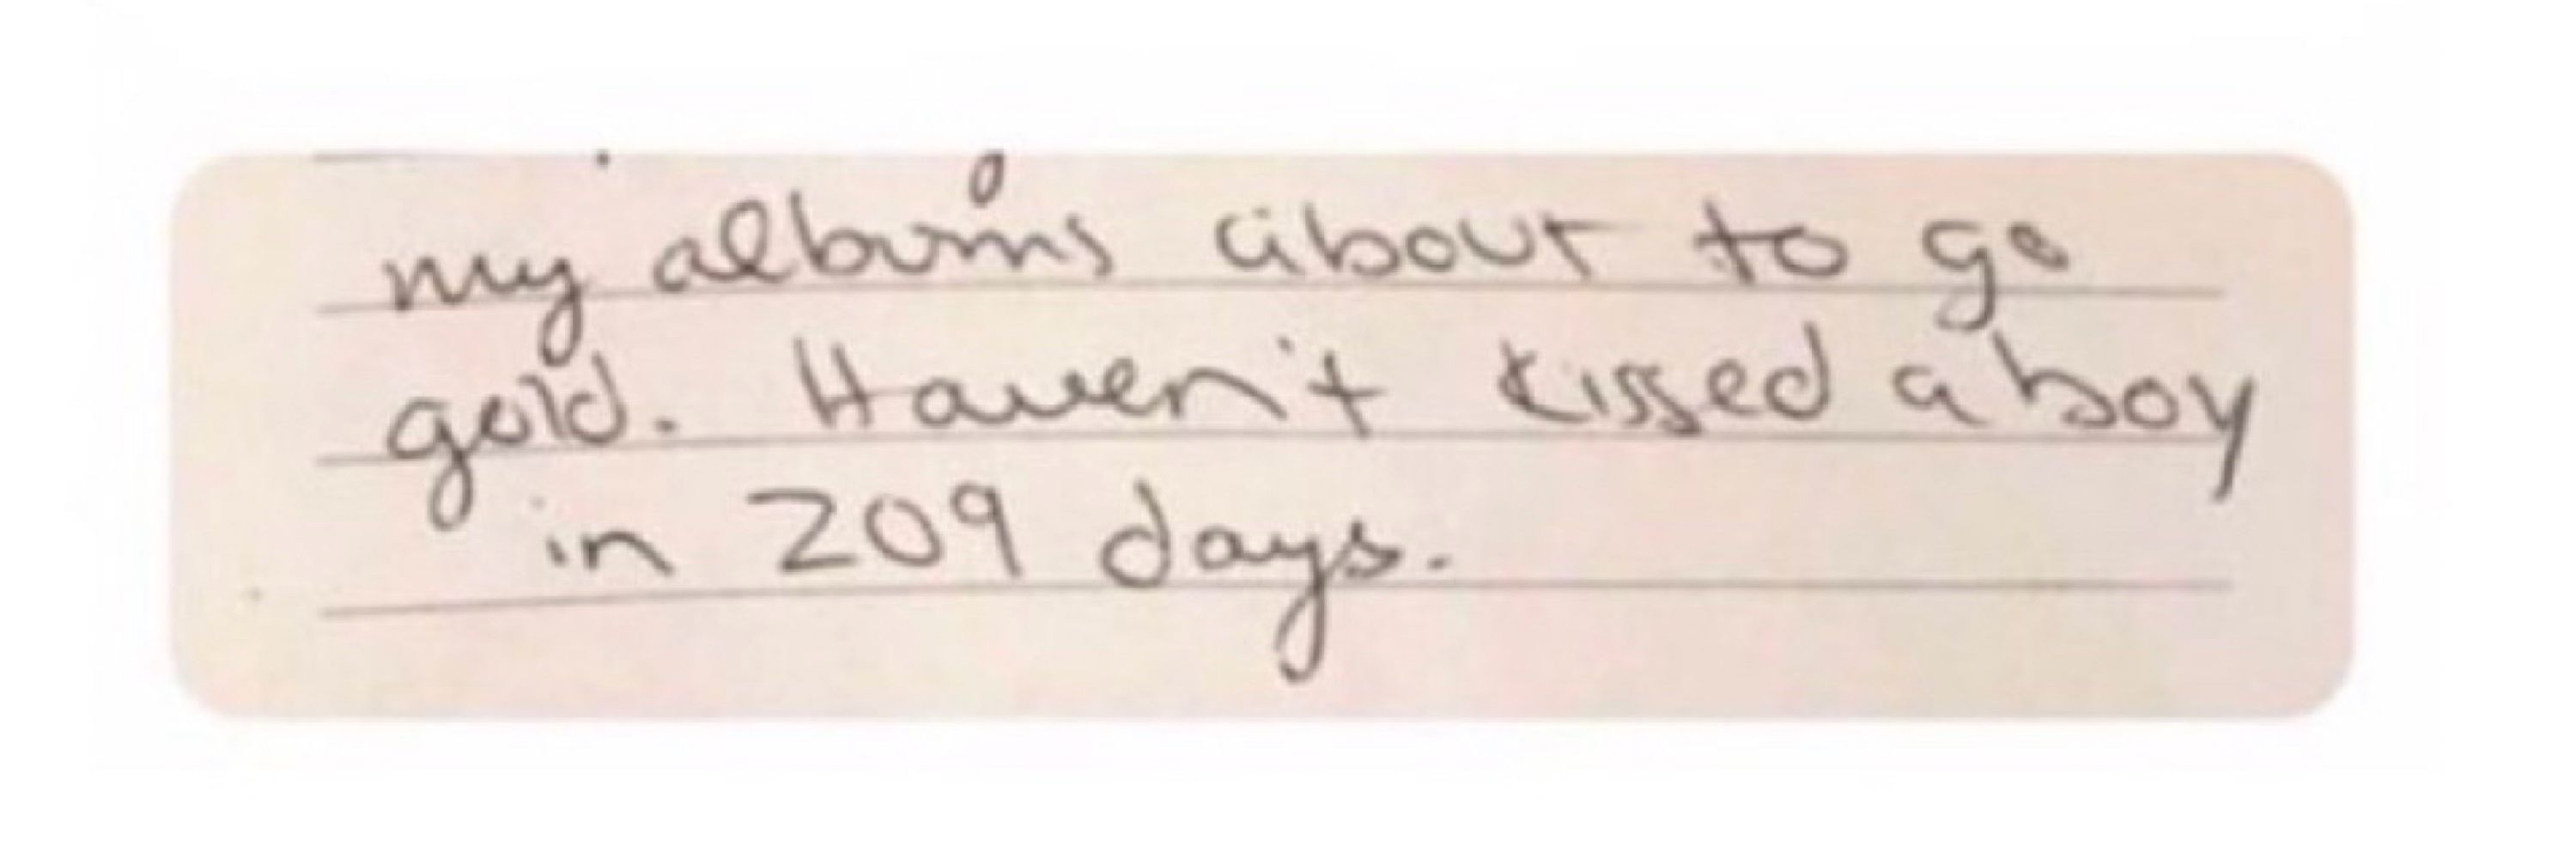 my albums about to go
gold. Haven't kissed a boy
in 209 days.